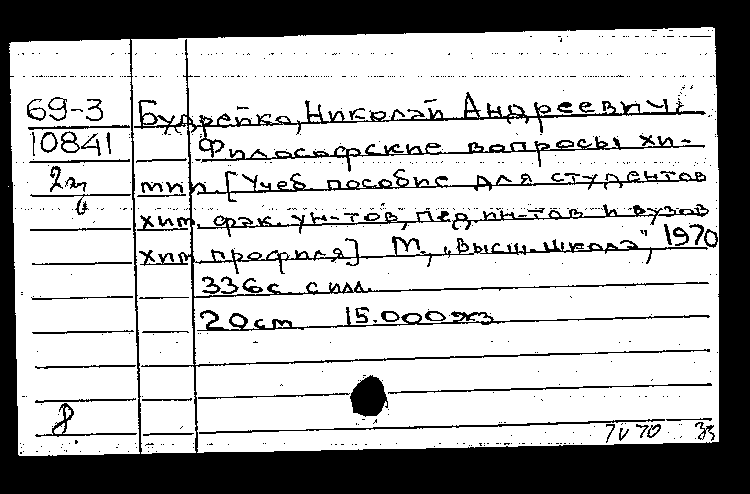 69-3 Будрейко, Николай Андреевич.
10841 Философские вопросы хи-
мии. [Учеб пособие для студентов
хим. фак. ун-тов, пед. ин-тов и вузов
хим. профиля] М., „Высш. школа", 1970
336 с с илл.
20 cm 15.000 экз
8.
7 V 70